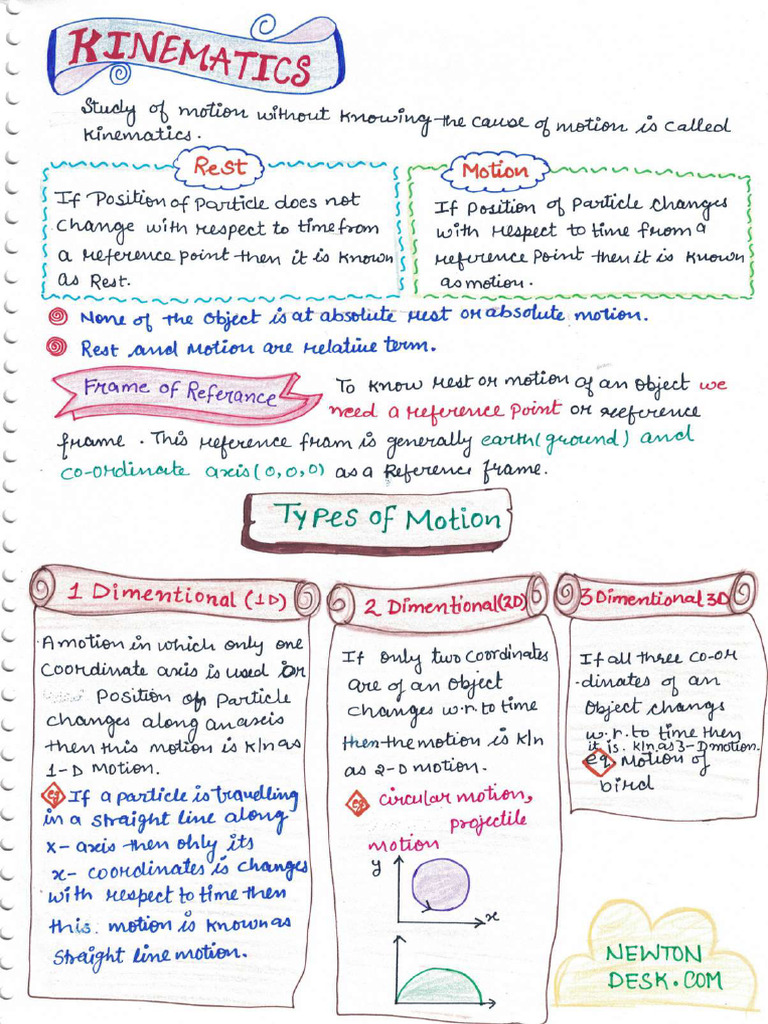 KINEMATICS
Study of motion without knowing the cause of motion is called
kinematics.
Rest
If Position of Particle does not
change with respect to time from
a reference point then it is known
as Rest.
Motion
If position of particle changes
with respect to time from a
reference point then it is known
as motion.
None of the object is at absolute rest or absolute motion.
Rest and Motion are relative term.
Frame of Referance
To know rest or motion of an object we
need a reference point or reeference
frame. This reference fram is generally earth(ground) and
co-ordinate axis(0,0,0) as a Reference frame.
Types of Motion
1 Dimentional (1D)
A motion in which only one
coordinate axis is used or
Position of Particle
changes along an axis
then this motion is k/n as
1-D Motion.
eg If a particle is travelling
in a straight line along
x-axis then only its
x-coordinates is changes
with respect to time then
this motion is known as
straight line motion.
2 Dimentional(2D)
If only two coordinates
are of an object
changes w.r.to time
then the motion is k/n
as 2-D motion.
eg circular motion,
projectile
motion
y
x
3 Dimentional 3D
If all three co-or
dinates of an
object changs
w.r.to time then
it is. k/n as 3-D motion.
eg Motion of
bird
NEWTON
DESK.COM